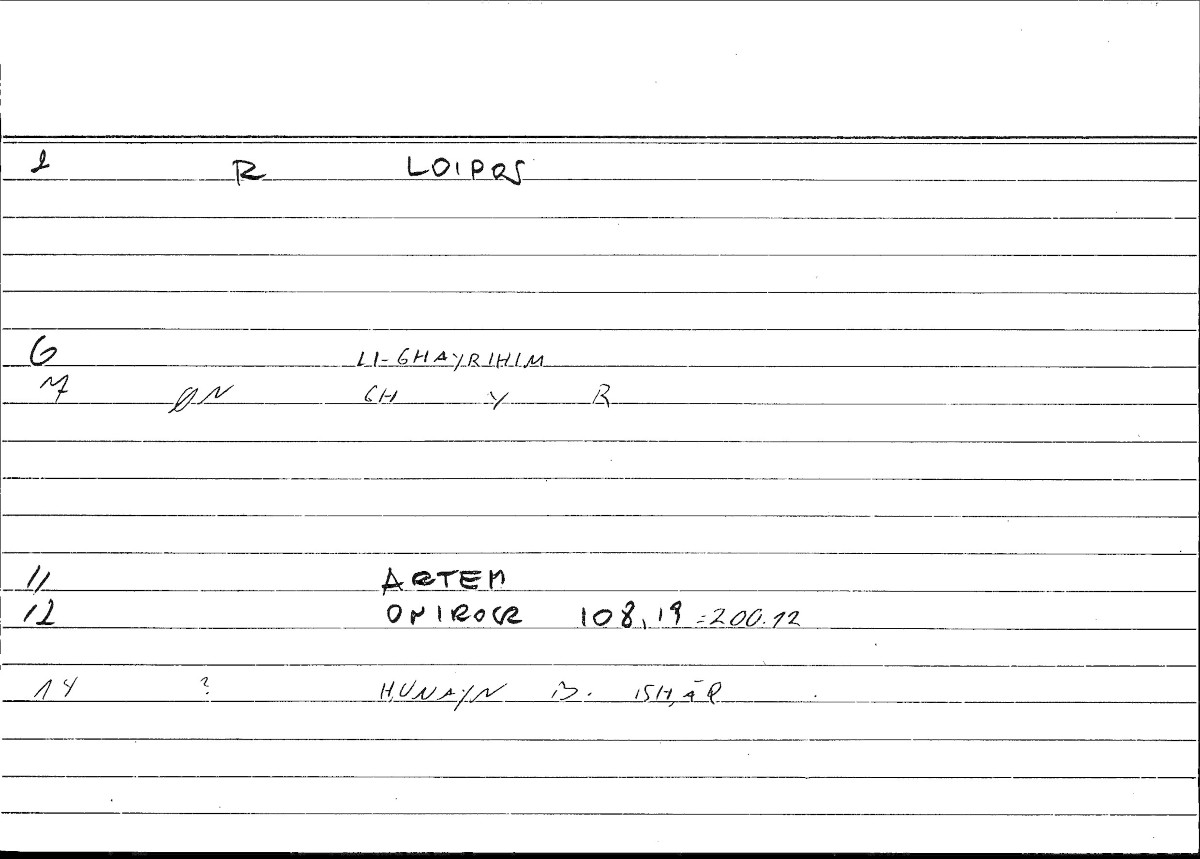 1 R LOIPOS
6 LI-GHAYRIHIM
7 ØN GH Y R
11 ARTEM
12 ONIROCR 108,19 =200.12
14 ? ḤUNAYN B. ISḤĀQ